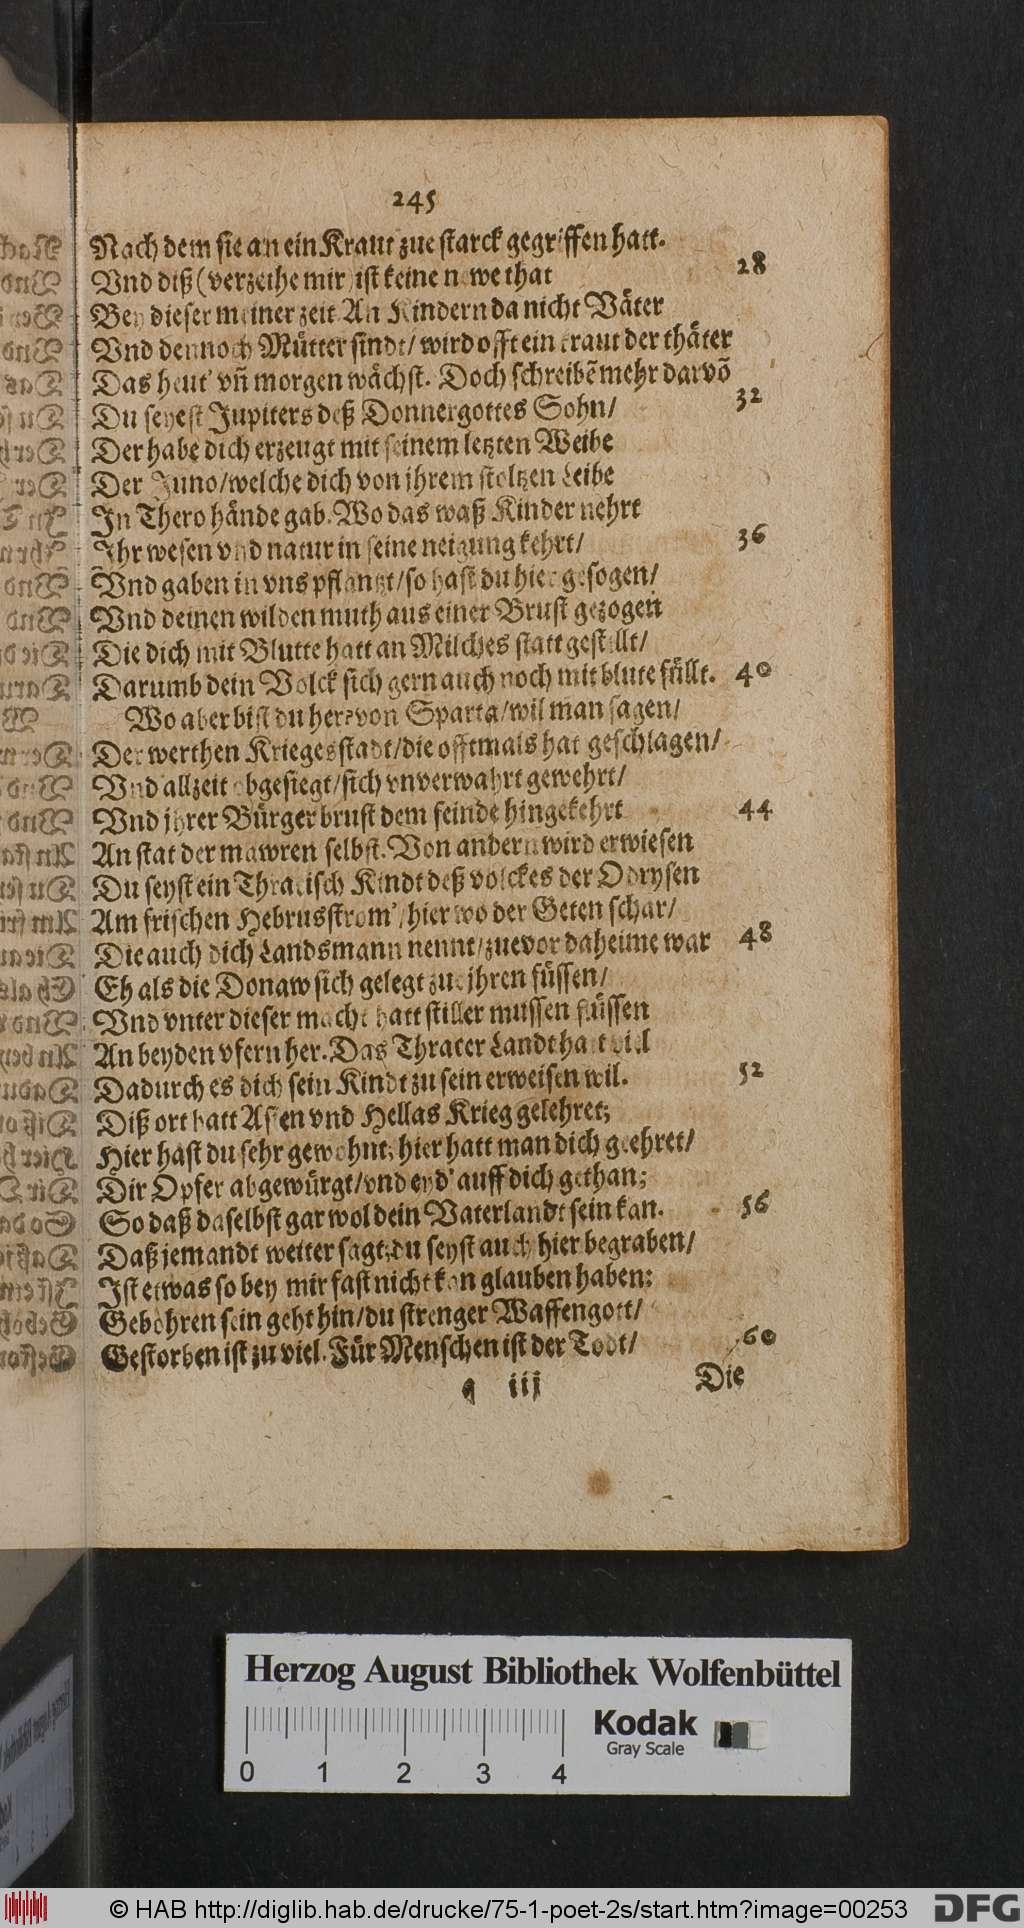 245
Nach dem sie an ein Kraut zue starck gegriffen hatt.
Vnd diß (verzeihe mir) ist keine newe that 28
Bey dieser meiner zeit. An Kindern da nicht Väter
Vnd dennoch Mütter sindt/ wird offt ein kraut der thäter
Das heut' vñ morgen wächst. Doch schreibẽ mehr darvõ
Du seyest Jupiters deß Donnergottes Sohn/ 32
Der habe dich erzeugt mit seinem letzten Weibe
Der Juno/ welche dich von jhrem stoltzen Leibe
In Thero hände gab. Wo das waß Kinder nehrt
Jhr wesen vnd natur in seine neigung kehrt/ 36
Vnd gaben in vns pflantzt/ so hast du hier gesogen/
Vnd deinen wilden muth aus einer Brust gezogen
Die dich mit Blutte hatt an Milches statt gestillt/
Darumb dein Volck sich gern auch noch mit blute füllt. 40
Wo aber bist du her? von Sparta/ wil man sagen/
Der werthen Kriegesstadt/ die offtmals hat geschlagen/
Vnd allzeit obgesiegt/ sich vnverwahrt gewehrt/
Vnd jhrer Bürger brust dem feinde hingekehrt 44
An stat der mawren selbst. Von andern wird erwiesen
Du seyst ein Thracisch Kindt deß volckes der Odrysen
Am frischen Hebrusstrom'/ hier wo der Geten schar/
Die auch dich Landsmann nennt/ zuevor daheime war 48
Eh als die Donaw sich gelegt zue jhren füssen/
Vnd vnter dieser macht hatt stiller mussen flüssen
An beyden vfern her. Das Thracer Landt hatt viel
Dadurch es dich sein Kindt zu sein erweisen wil. 52
Diß ort hatt Asien vnd Hellas Krieg gelehret;
Hier hast du sehr gewohnt; hier hatt man dich geehret/
Dir Opfer abgewürgt/ vnd eyd' auff dich gethan;
So daß daselbst gar wol dein Vaterlandt sein kan. 56
Daß jemandt weiter sagt; du seyst auch hier begraben/
Ist etwas so bey mir fast nicht kan glauben haben:
Gebohren sein geht hin/ du strenger Waffengott/
Gestorben ist zu viel. Für Menschen ist der Todt/ 60
q iij Die
Herzog August Bibliothek Wolfenbüttel
Kodak
Gray Scale
0 1 2 3 4
© HAB http://diglib.hab.de/drucke/75-1-poet-2s/start.htm?image=00253
DFG